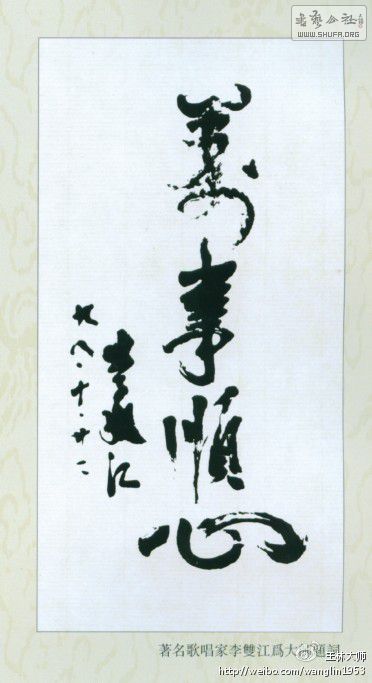 書藝公社
WWW.SHUFA.ORG
萬事順心
李双江
九八·十·廿二
著名歌唱家李雙江爲大師題詞
王林大师
http://weibo.com/wanglin1953